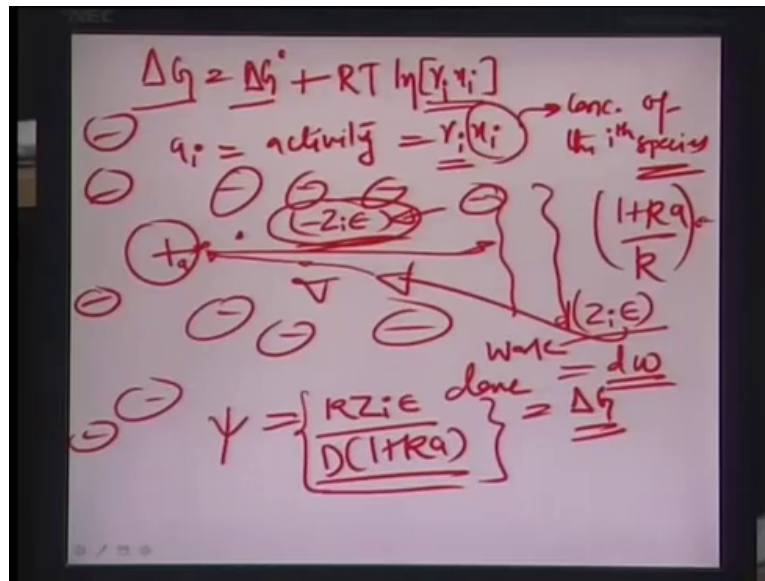 NEC
ΔG = ΔG° + RT ln[γi xi]
ai = activity = γi xi → Conc. of
the ith species
(-Ziε)
+a
(1+Ka / K)
d(Ziε)
Work done = dw
ψ = {KZiε / D(1+Ka)} = ΔG